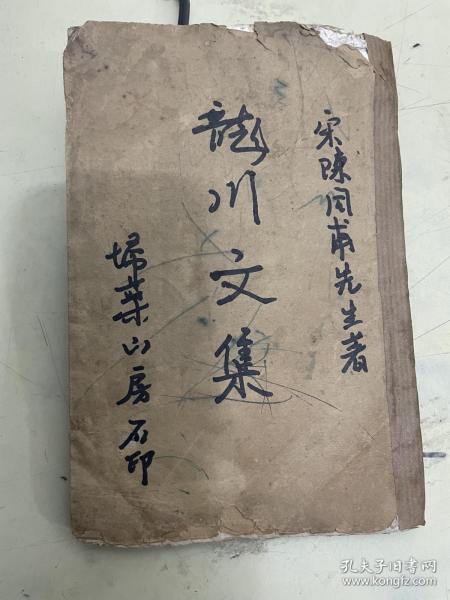 宋陈同甫先生著
龍川文集
埽葉山房石印
孔夫子旧书网
www.kongfz.com